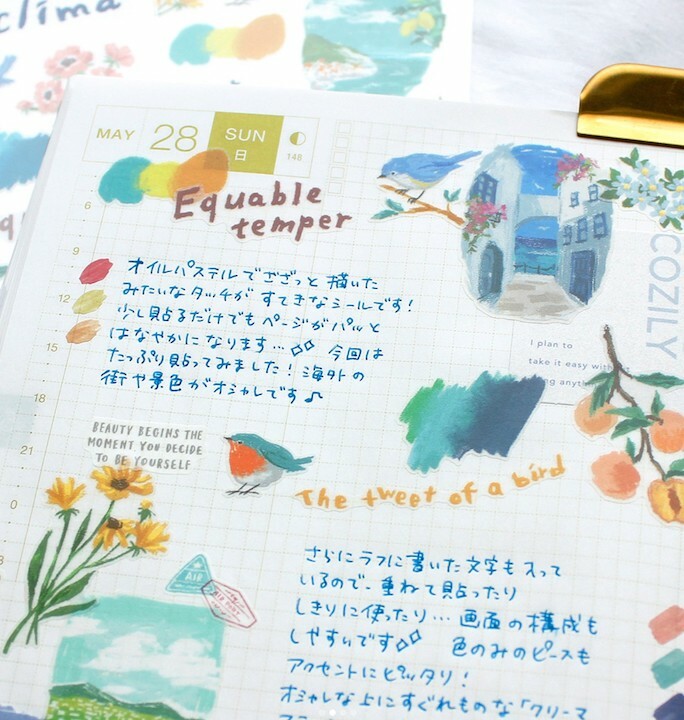 clima
MAY 28 SUN
日 148
6
9
12
15
18
21
0
Equable
temper
オイルパステルでざざっと描いた
みたいなタッチがすてきなシールです!
少し貼るだけでもページがパッと
はなやかになります… 今回は
たっぷり貼ってみました!海外の
街や景色がオシャレです♪
COZILY
I plan to
take it easy
BEAUTY BEGINS THE
MOMENT YOU DECIDE
TO BE YOURSELF
The tweet of a bird
AIR
さらにラフに書いた文字も入って
いるので、重ねて貼ったり
しきりに使ったり…画面の構成も
しやすいです 色のみのピースも
アクセントにピッタリ!
オシャレな上にすぐれものな「クリーマ